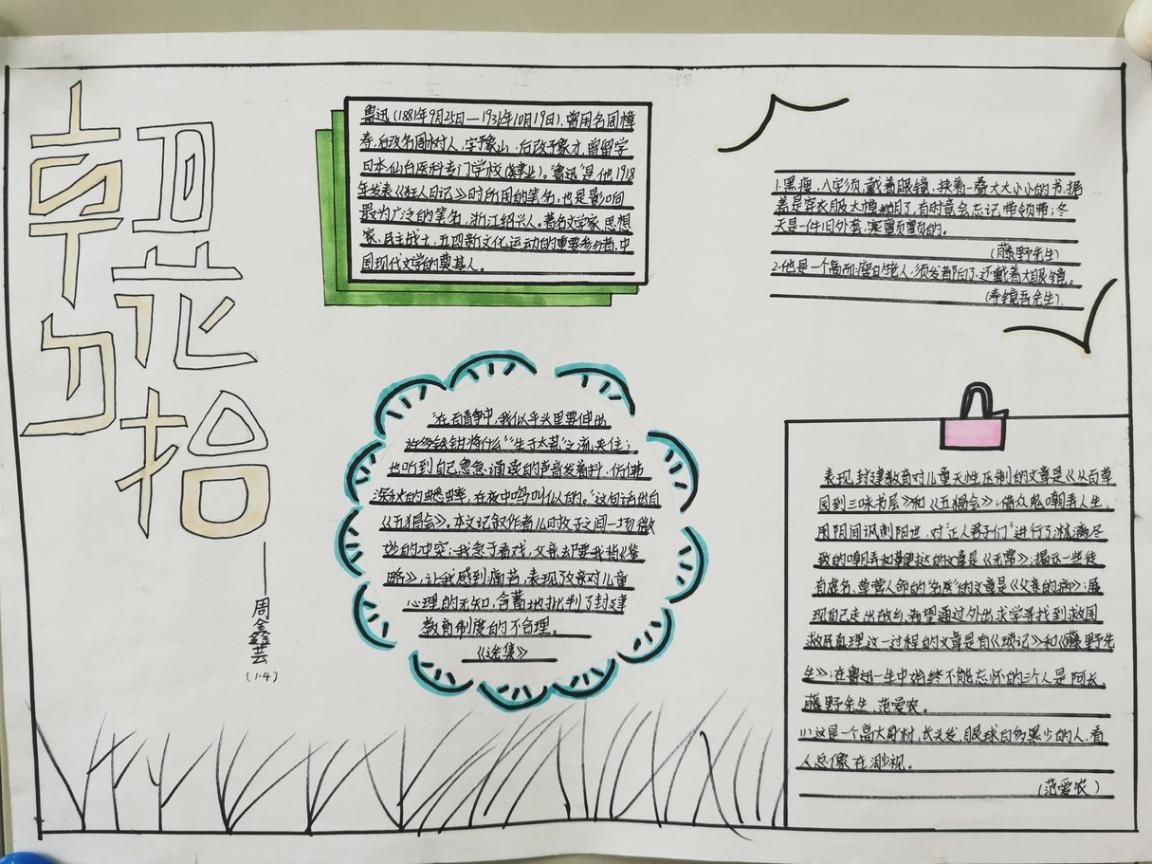 朝花夕拾
——周鑫芸
(1.4)
鲁迅(1881年9月25日—1936年10月19日),曾用名周樟
寿,后改名周树人,字豫山,后改豫才,曾留学
日本仙台医科专门学校(肄业)。"鲁迅"是他1918
年发表《狂人日记》时所用的笔名,也是影响
最为广泛的笔名,浙江绍兴人。著名文学家、思想
家、民主战士,五四新文化运动的重要参与者,中
国现代文学的奠基人。
1.黑瘦,八字须,戴着眼镜,挟着一叠大大小小的书,据
说是穿衣服太模糊了,有时竟会忘记带领带;冬
天是一件旧外套,寒颤颤的。
(藤野先生)
2.他是一个高而瘦的老人,须发都花白了,还戴着大眼镜。
(寿镜吾先生)
"在百静中,我似乎头里要伸出
许多铁钳,将什么"生于太荒"之流夹住;
也听到自己急急诵读的声音发着抖,仿佛
深秋的蟋蟀,在夜中鸣叫似的。"这句话出自
《五猖会》。本文记叙作者儿时父子之间一场微
妙的冲突:我急于看戏,父亲却要我背《鉴
略》,让我感到痛苦,表现了父亲对儿童
心理的无知,含蓄地批判了封建
教育制度的不合理。
表现封建教育对儿童天性压制的文章是《从百草
园到三味书屋》和《五猖会》;借众鬼嘲弄人生,
用阴间讽刺阳世,对"正人君子们"进行了淋漓尽
致的嘲弄和鞭挞的文章是《无常》;揭示一些徒
有虚名,草菅人命的"名医"的文章是《父亲的病》;展
现自己走出故乡,希望通过外出求学寻找到救国
救民真理这一过程的文章是有《琐记》和《藤野先
生》;在鲁迅一生中始终不能忘怀的三个人是阿长、
藤野先生、范爱农。
(1)这是一个高大身材,长头发,眼球白多黑少的人,看
人总像在渺视。
(范爱农)